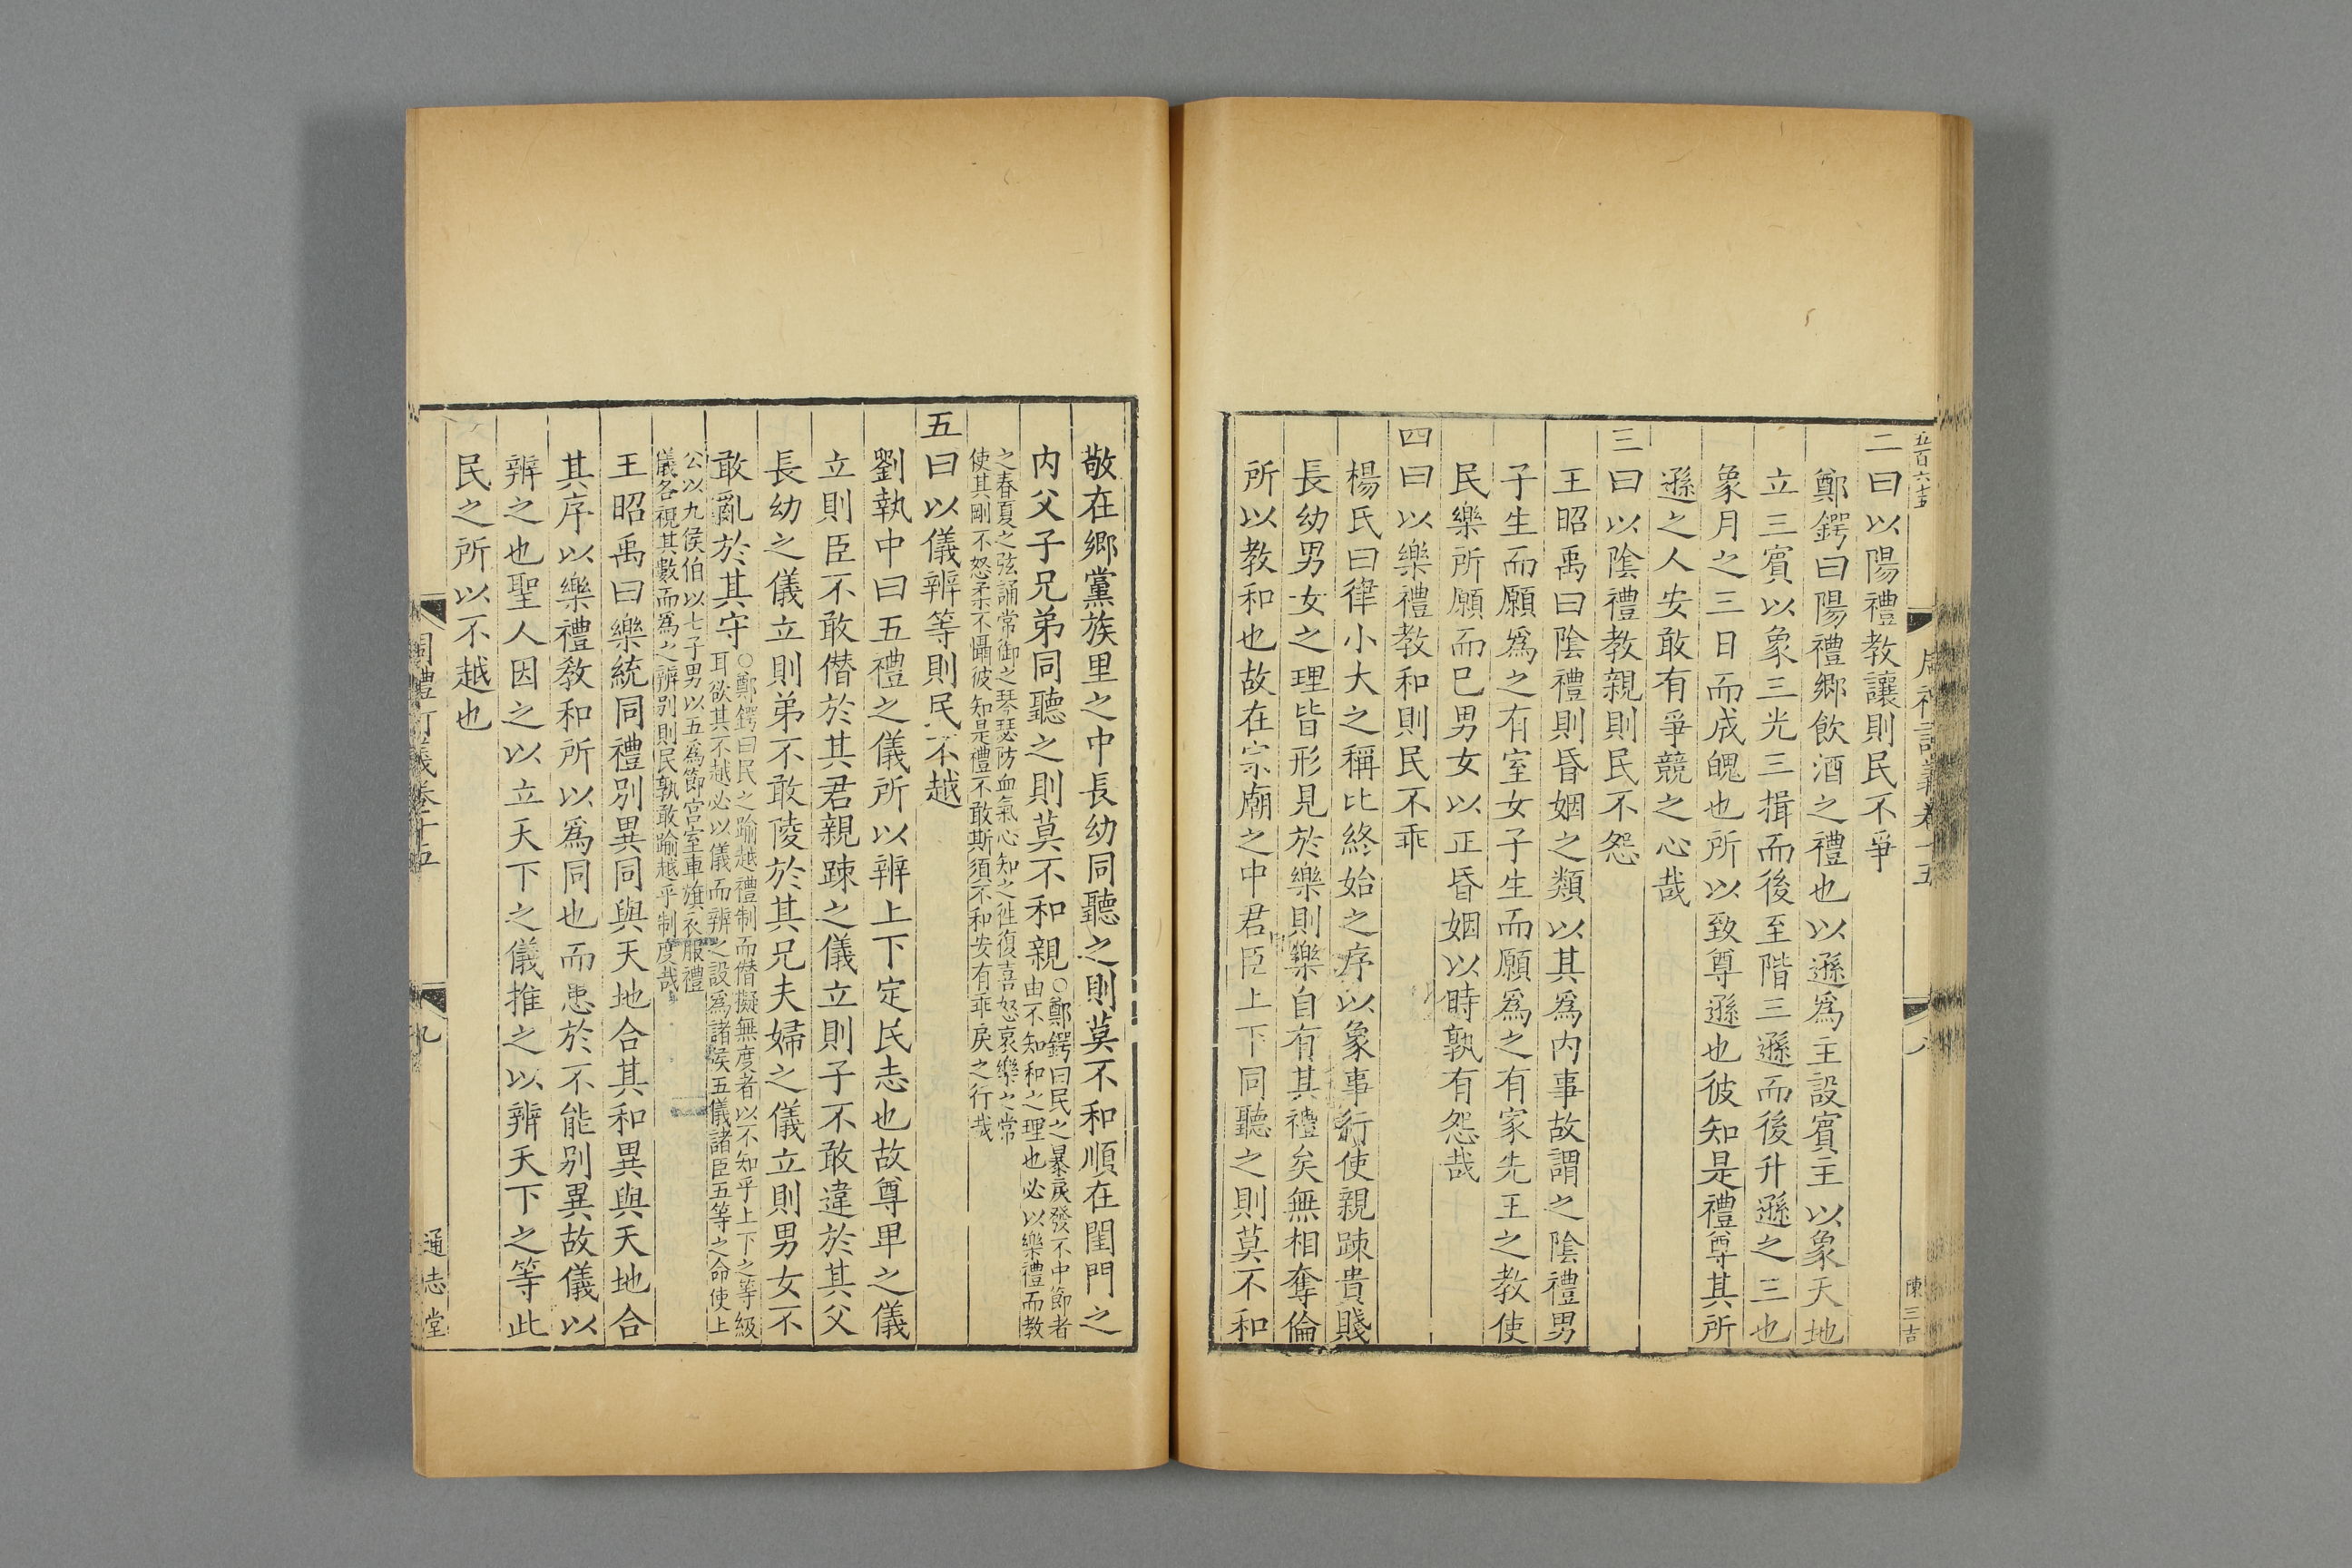 二曰以陽禮教讓則民不爭
鄭鍔曰陽禮鄉飲酒之禮也以遜爲主設賓主以象天地
立三賓以象三光三揖而後至階三遜而後升遜之三也
象月之三日而成魄也所以致尊遜也彼知是禮尊其所
遜之人安敢有爭競之心哉
三曰以陰禮教親則民不怨
王昭禹曰陰禮則昏姻之類以其爲内事故謂之陰禮男
子生而願爲之有室女子生而願爲之有家先王之教使
民樂所願而已男女以正昏姻以時孰有怨哉
四曰以樂禮教和則民不乖
楊氏曰律小大之稱比終始之序以象事行使親踈貴賤
長幼男女之理皆形見於樂則樂自有其禮矣無相奪倫
所以教和也故在宗廟之中君臣上下同聽之則莫不和
敬在鄉黨族里之中長幼同聽之則莫不和順在閨門之
内父子兄弟同聽之則莫不和親○鄭鍔曰民之暴戾發不中節者
由不知和之理也必以樂禮而教
之春夏之弦誦常御之琴瑟防血氣心知之徃復喜怒哀樂之常
使其剛不怒柔不懾彼知是禮不敢斯須不和安有乖戾之行哉
五曰以儀辨等則民不越
劉執中曰五禮之儀所以辨上下定民志也故尊卑之儀
立則臣不敢僭於其君親踈之儀立則子不敢違於其父
長幼之儀立則弟不敢陵於其兄夫婦之儀立則男女不
敢亂於其守○鄭鍔曰民之踰越禮制而僭擬無度者以不知乎上下之等級
耳欲其不越必以儀而辨之設爲諸侯五儀諸臣五等之命使上
公以九侯伯以七子男以五爲節宫室車旗衣服禮
儀各視其數而爲之辨别則民孰敢踰越乎制度哉
王昭禹曰樂統同禮别異同與天地合其和異與天地合
其序以樂禮敎和所以爲同也而患於不能别異故儀以
辨之也聖人因之以立天下之儀推之以辨天下之等此
民之所以不越也
周禮訂義卷十五
九
通志堂